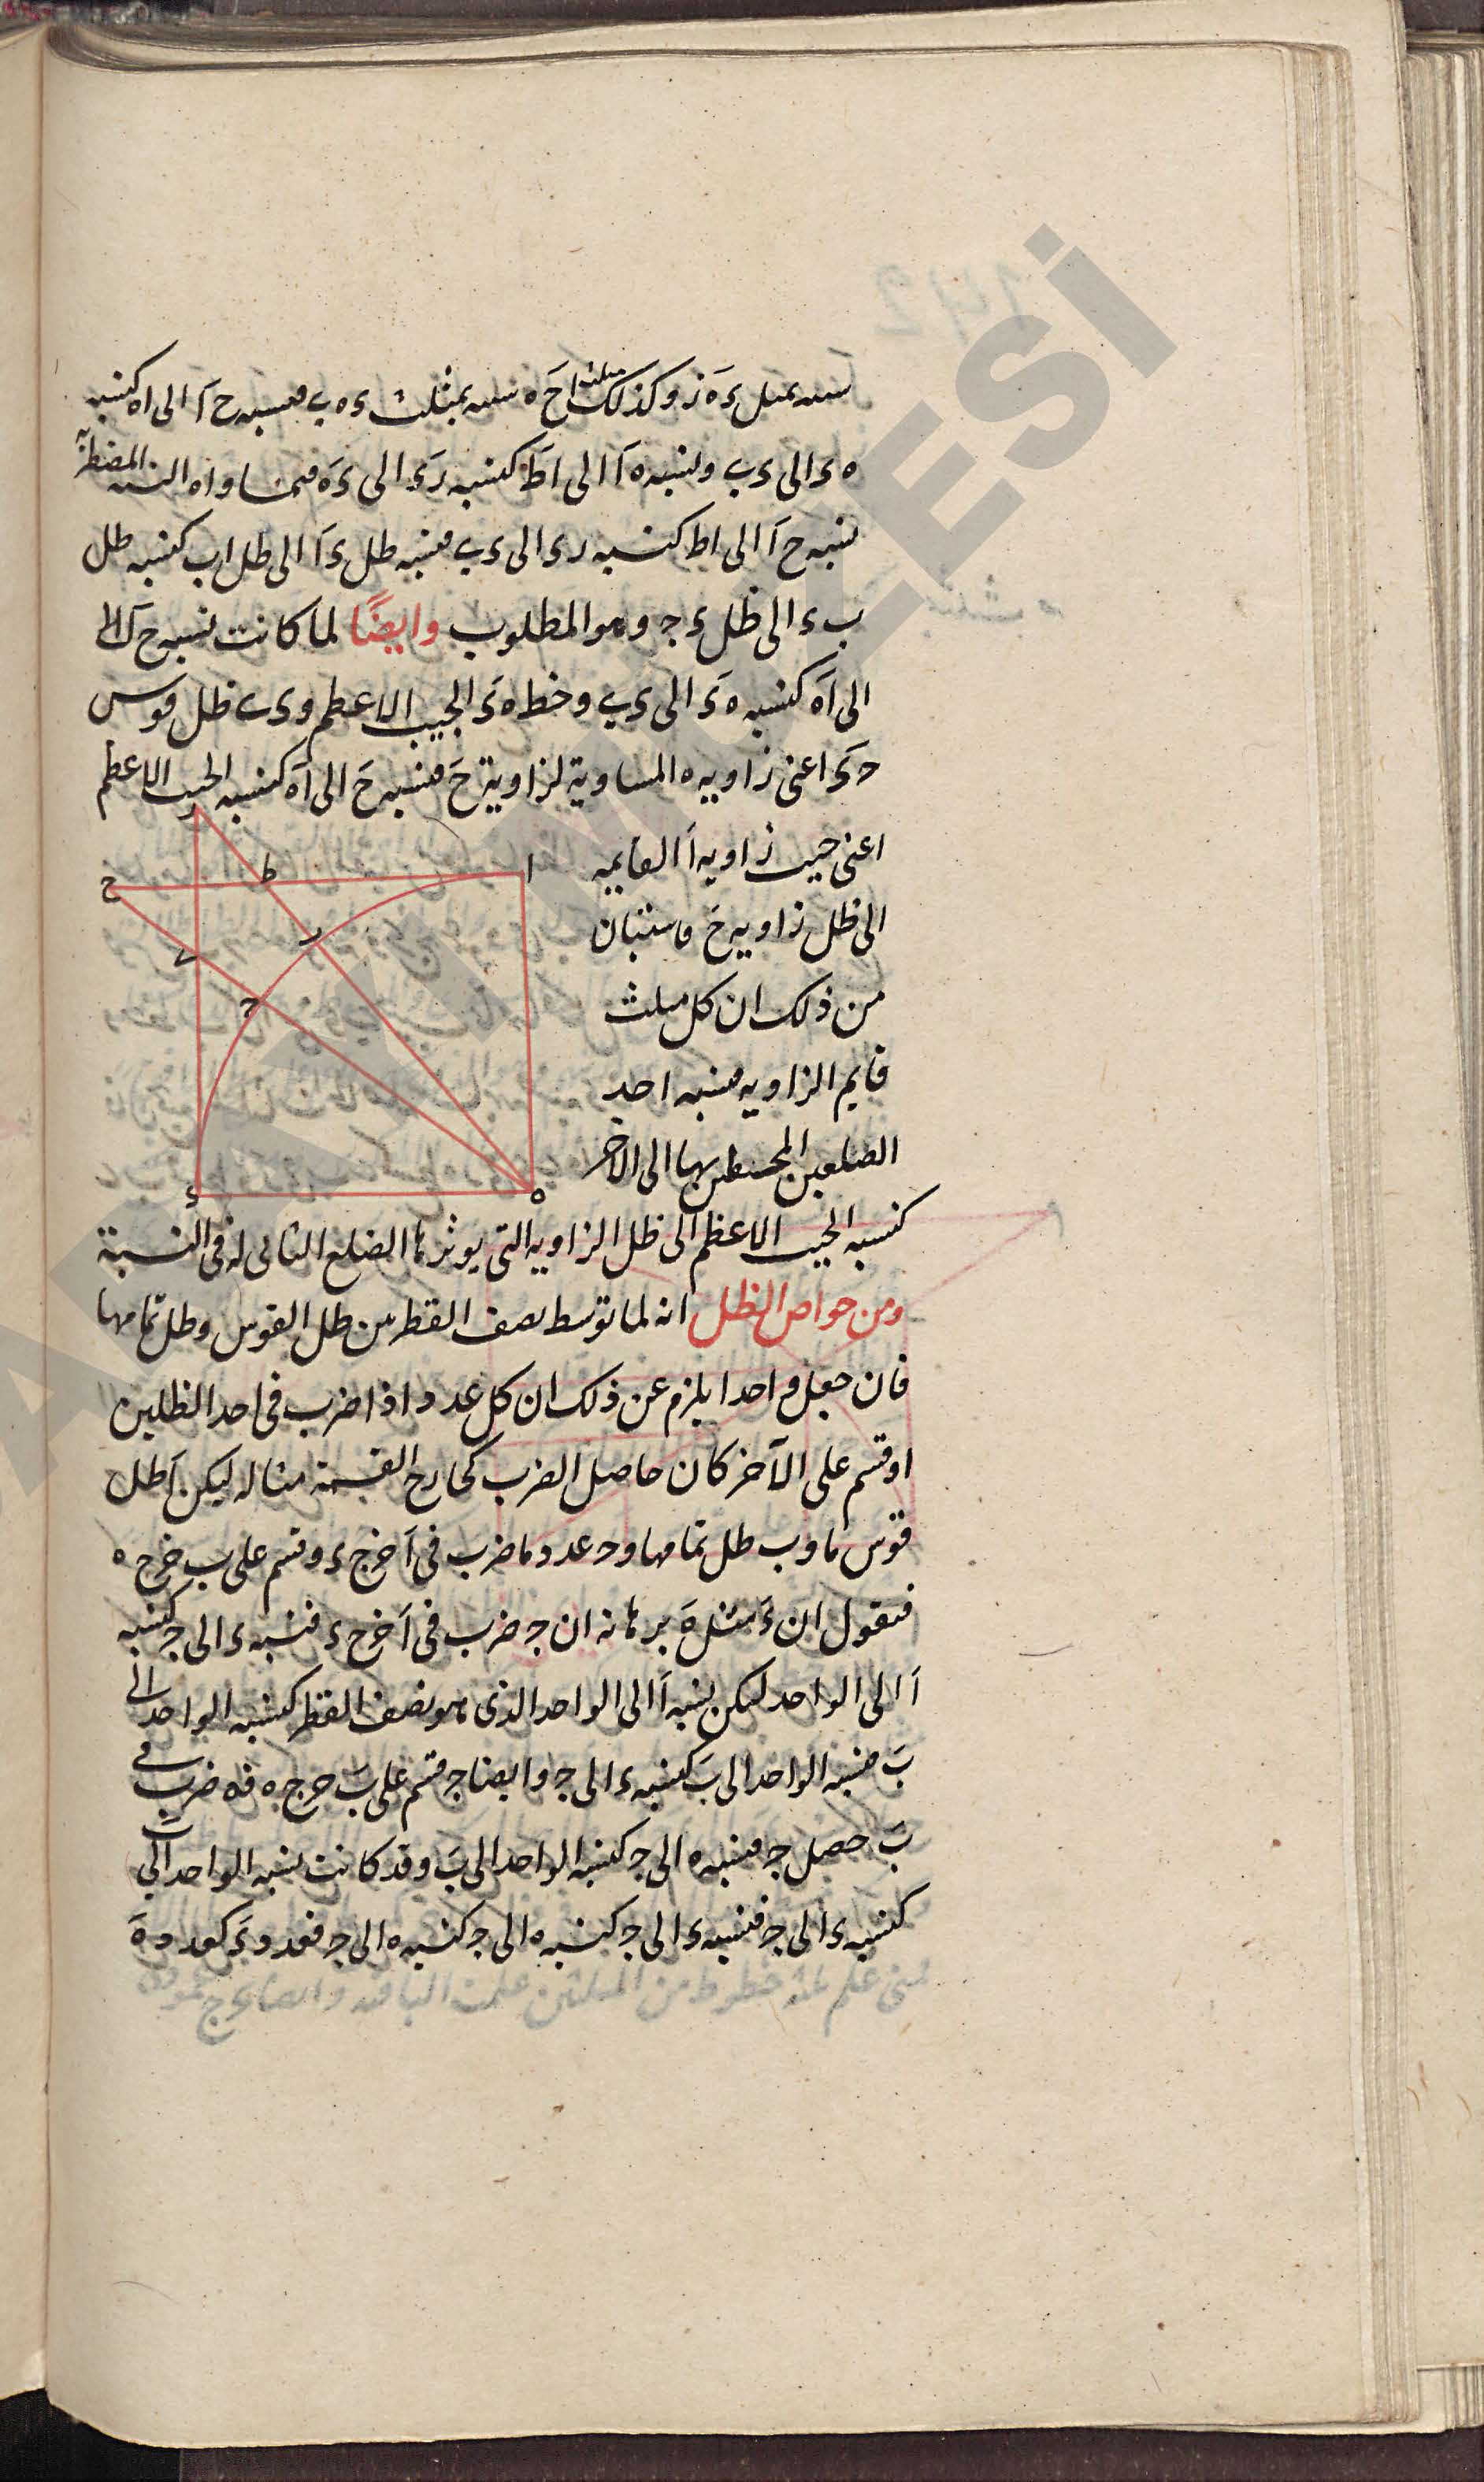 سه بمثل ءه ز وكذلك مثلث اح ه سه بمثلث ء ه ب فنسبه ح ا الى اه كنسبه
ه ء الى ء ب ونسبه ه ا الى اط كنسبه ز ء الى ء ه فبمساواه النسبه المضطربه
نسبه ح ا الى اط كنسبه ر ء الى ء ب فنسبه ظل ء ا الى ظل اب كنسبه ظل
ب ء الى ظل ء ج وهو المطلوب وايضًا لما كانت نسبه ح ا
الى اه كنسبه ه ء الى ء ب وخط ه ء الجيب الاعظم و ء ب ظل قوس
ح ء اعنى زاويه ه المساوية لزاوية ح فنسبه ح الى اه كنسبه الجيب الاعظم
اعنى جيب زاويه ا القايمه
الى ظل زاويه ح فاستبان
من ذلك ان كل مثلث
قايم الزاويه فنسبه احد
الضلعين المحيطين بها الى الاخر
كنسبه الجيب الاعظم الى ظل الزاويه التى يوثرها الضلع التالى له فى النسبة
ومن خواص الظل انه لما توسط نصف القطر بين ظل القوس وظل تمامها
فان جعل واحدا يلزم عن ذلك ان كل عدد اذا ضرب فى احد الظلين
او قسم على الآخر كان حاصل الضرب كخارج القسمة مثاله ليكن آ ظل
قوس ما وب ظل تمامها وج عدد ما ضرب فى آ خرج ء وقسم على ب خرج ه
فنقول ان ء مثل ه برهانه ان ج ضرب فى آ خرج ء فنسبه ء الى ج كنسبه
آ الى الواحد لكن نسبه آ الى الواحد الذى هو نصف القطر كنسبه الواحد الى
ب فنسبه الواحد الى ب كنسبه ء الى ج وايضا ج قسم على ب خرج ه فه ضرب فى
ب حصل ج فنسبه ه الى ج كنسبه الواحد الى ب وقد كانت نسبه الواحد الى ب
كنسبه ء الى ج فنسبه ء الى ج كنسبه ه الى ج كنسبه ه الى ج فعدد ء كعدد ه
ا
ط
ح
ر
ب
ج
ء
ه